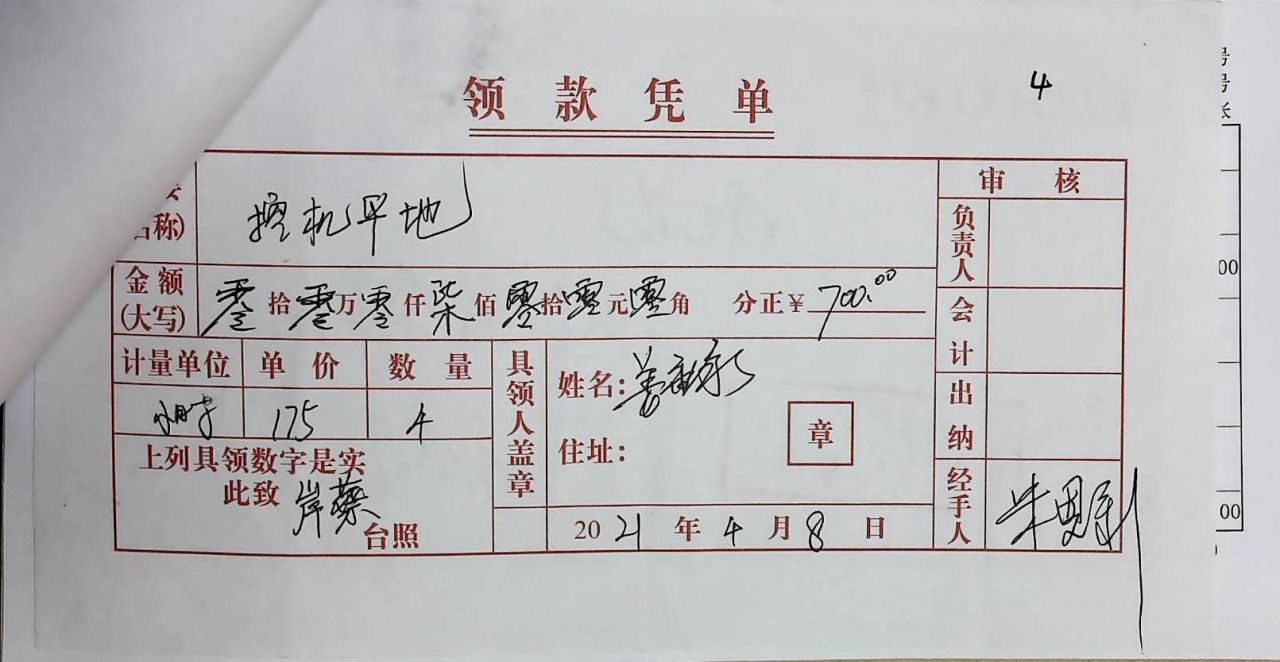 领款凭单
4
名称)
挖机平地
审核
负责人
金额(大写)
零拾零万零仟柒佰零拾零元零角 分正￥700.00
会计
计量单位 单价 数量
小时 175 4
具领人盖章
姓名:
住址:
章
出纳
上列具领数字是实
此致 岸蔡
台照
2021年4月8日
经手人
号
号
长
00
00